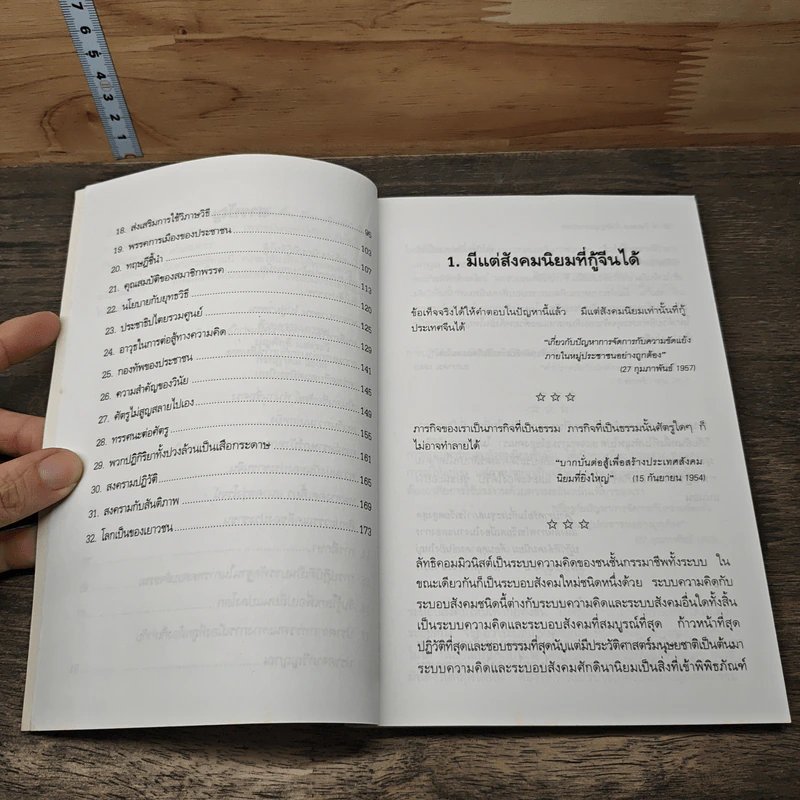 7 6 5 4 3 2 1
18. ส่งเสริมการใช้วิภาษวิธี 96
19. พรรคการเมืองของประชาชน 103
20. ทฤษฎีชี้นำ 107
21. คุณสมบัติของสมาชิกพรรค 113
22. นโยบายกับยุทธวิธี 120
23. ประชาธิปไตยรวมศูนย์ 126
24. อาวุธในการต่อสู้ทางความคิด 129
25. กองทัพของประชาชน 141
26. ความสำคัญของวินัย 145
27. ศัตรูไม่สูญสลายไปเอง 149
28. ทรรศนะต่อศัตรู 155
29. พวกปฏิกิริยาทั้งปวงล้วนเป็นเสือกระดาษ 161
30. สงครามปฏิวัติ 165
31. สงครามกับสันติภาพ 169
32. โลกเป็นของเยาวชน 173
1. มีแต่สังคมนิยมที่กู้จีนได้
ข้อเท็จจริงได้ให้คำตอบในปัญหานี้แล้ว มีแต่สังคมนิยมเท่านั้นที่กู้
ประเทศจีนได้
"เกี่ยวกับปัญหาการจัดการกับความขัดแย้ง
ภายในหมู่ประชาชนอย่างถูกต้อง"
(27 กุมภาพันธ์ 1957)
☆ ☆ ☆
ภารกิจของเราเป็นภารกิจที่เป็นธรรม ภารกิจที่เป็นธรรมนั้นศัตรูใดๆ ก็
ไม่อาจทำลายได้
"บากบั่นต่อสู้เพื่อสร้างประเทศสังคม
นิยมที่ยิ่งใหญ่" (15 กันยายน 1954)
☆ ☆ ☆
ลัทธิคอมมิวนิสต์เป็นระบบความคิดของชนชั้นกรรมาชีพทั้งระบบ ใน
ขณะเดียวกันก็เป็นระบอบสังคมใหม่ชนิดหนึ่งด้วย ระบบความคิดกับ
ระบอบสังคมชนิดนี้ต่างกับระบบความคิดและระบบสังคมอื่นใดทั้งสิ้น
เป็นระบบความคิดและระบอบสังคมที่สมบูรณ์ที่สุด ก้าวหน้าที่สุด
ปฏิวัติที่สุดและชอบธรรมที่สุดนับแต่มีประวัติศาสตร์มนุษยชาติเป็นต้นมา
ระบบความคิดและระบอบสังคมศักดินานิยมเป็นสิ่งที่เข้าพิพิธภัณฑ์